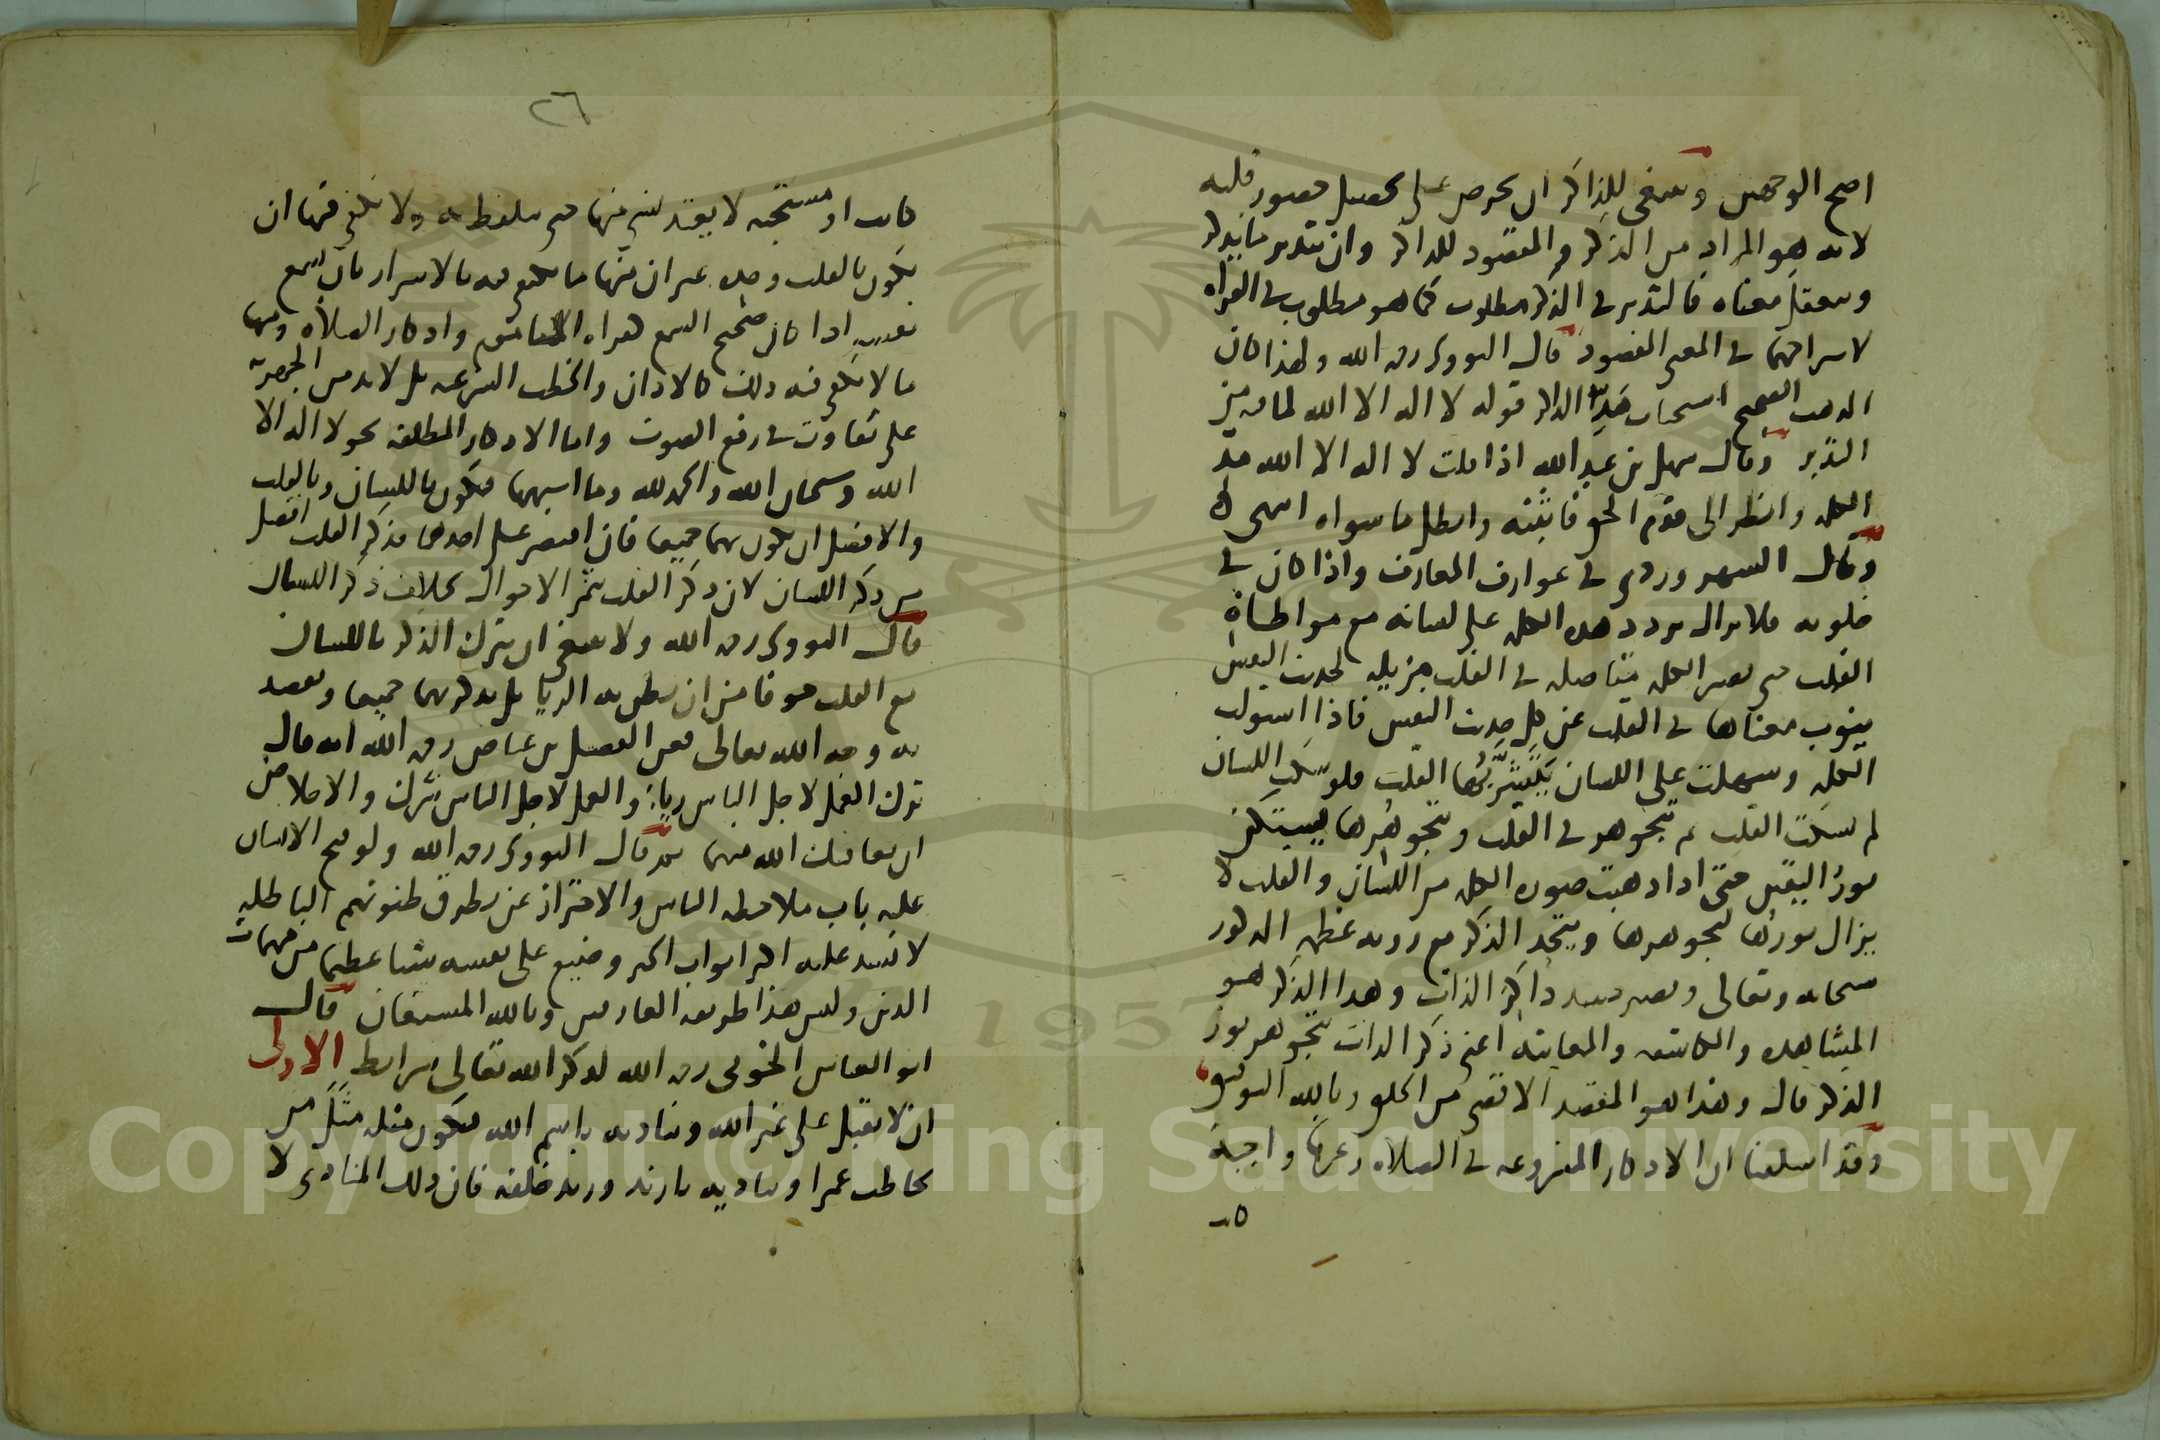 اصح الوجهين وينبغي للذاكر ان يحرص على تحصيل حضور قلبه
لانه هو المراد من الذكر والمقصود للذاكر وان يتدبر ما يذكر
ويتعقل معناه فالتدبر في الذكر مطلوب كما هو مطلوب في القراه
لاشراكهما في المعنى المقصود قال النووي رحمه الله ولهذا كان
المذهب الصحيح استحباب مد الذاكر قوله لا اله الا الله لما فيه من
التدبر وقال سهل بن عبد الله اذا قلت لا اله الا الله مد
الكله وانظر الى قدم الحق فاثبته وابطل ما سواه انتهى
وقال السهروردي في عوارف المعارف واذا كان في
خلوته فلا يزال يردد هذه الكله على لسانه مع مواطاة
القلب حتى تصير الكله متاصله في القلب مزيله لحديث النفس
ينوب معناها في القلب عن كل حديث النفس فاذا استولت
الكله وسهلت على اللسان يتشربها القلب فلو سكت اللسان
لم يسكت القلب ثم تتجوهر في القلب وبتجوهرها يستكن
نور اليقين حتى اذا ذهبت صوره الكله من اللسان والقلب لا
يزال نورها متجوهرها ويتحد الذكر مع رويه عظمه المذكور
سبحانه وتعالى ويصير حينئذ ذاكر الذات وهذا الذكر هو
المشاهده والمكاشفه والمعاينه اعني ذكر الذات بتجوهر نور
الذكر قال وهذا هو المقصد الاقصى من الخلوه وبالله التوفيق
وقد اسلفنا ان الاذكار المشروعه في الصلاه وغيرها واجبة
كانت
٢٦
كانت او مستحبه لا يعتد بشي منها حتى يتلفظ به ولا يكفي فيها ان
يكون بالقلب وحده غير ان منها ما يكتفى فيه بالاسرار بان يسمع
نفسه اذا كان صحيح السمع كقراه واذكار الصلاه ومنها
ما لا يكفي فيه ذلك كالاذان والخطب الشرعيه بل لا بد من الجهر به
على تفاوت في رفع الصوت واما الاذكار المطلقه نحو لا اله الا
الله وسبحان الله والحمد لله وما اشبهها فيكون باللسان وبالقلب
والافضل ان يكون بهما جميعا فان اقتصر على احدهما فذكر القلب افضل
من ذكر اللسان لان ذكر القلب يثمر الاحوال بخلاف ذكر اللسان
قال النووي رحمه الله ولا ينبغي ان يترك الذكر باللسان
مع القلب خوفا من ان يظن به الريا بل يذكر بهما جميعا ويقصد
به وجه الله تعالى فعن الفضيل بن عياض رحمه الله انه قال
ترك العمل لاجل الناس رياء والعمل لاجل الناس شرك والاخلاص
ان يعافيك الله منهما قال النووي رحمه الله ولو فتح الانسان
عليه باب ملاحظه الناس والاحتراز عن تطرق ظنونهم الباطله
لانسد عليه اكثر ابواب الخير وضيع على نفسه شيا عظيما من مهمات
الدين وليس هذا طريقه العارفين وبالله المستعان قال
ابو العباس رحمه الله لذكر الله تعالى شرايط الاولى
ان لا يقبل على غير الله وينادي باسم الله فيكون مثله مثل من
يخاطب عمرا ويناديه يا زيد وزيد خلفه فان ذلك المنادى لا
Copyright © King Saud University
1957